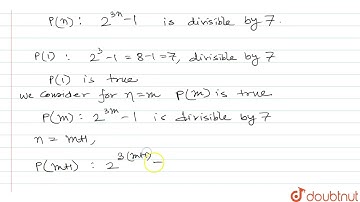 P(n) : 2^{3n} - 1 is divisible by 7.
P(1) : 2^3 - 1 = 8 - 1 = 7, divisible by 7
P(1) is true
we consider for n = m P(m) is true
P(m) : 2^{3m} - 1 is divisible by 7
n = m+1,
P(m+1) : 2^{3(m+1)} -
doubtnut